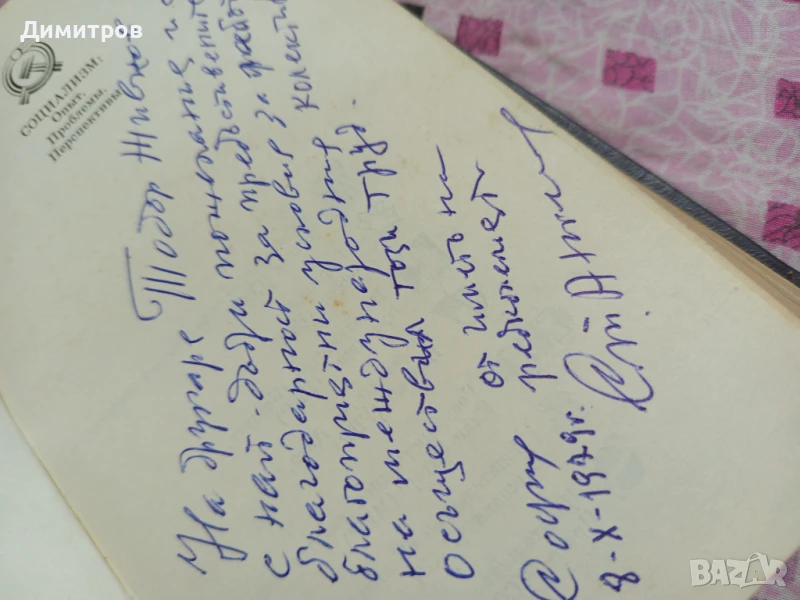 Димитров
СОЦИАЛИЗМ:
Опыт.
Проблемы.
Перспективы
На другаря Тодор Живков
с най-добри пожелания и с
благодарност за предоставените
благоприятни условия за работа
на международния колектив
осъществил този труд.
от името на
редколегията
София
8-X-1979г.
BAZAR